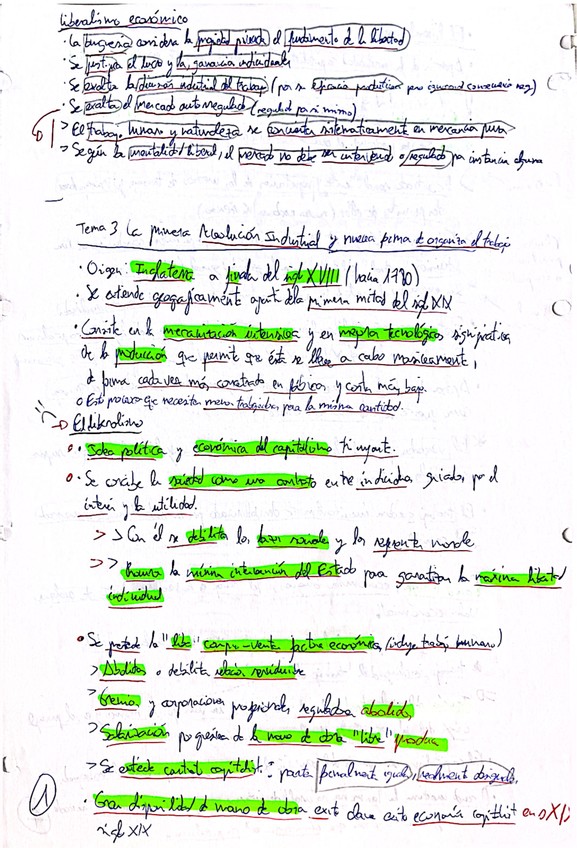 liberalismo económico
· La burguesía considera la propiedad privada el fundamento de la libertad
· Se justifica el lucro y la ganancia individuales
· Se exalta la división industrial del trabajo (por su eficiencia productiva pero
· Se exalta el mercado autorregulado (regulado por sí mismo)
> El trabajo humano y naturaleza se convierten sistemáticamente en mercancía pura
> Según la mentalidad liberal, el mercado no debe ser intervenido o regulado por instancia alguna
Tema 3 La primera Revolución Industrial y nueva forma de organizar el trabajo
· Origen: Inglaterra a finales del siglo XVIII (hacia 1780)
· Se extiende geográficamente a partir de la primera mitad del siglo XIX
· Consiste en la mecanización extensiva y en mejoras tecnológicas significativas
de la producción que permite que ésta se lleve a cabo masivamente,
de forma cada vez más concentrada en fábricas y coste más bajo.
o Es proceso que necesita menos trabajadores para la misma cantidad.
→ El liberalismo
· Idea política y económica del capitalismo triunfante.
· Se concibe la sociedad como un contrato entre individuos, guiados por el
interés y la utilidad.
> Con él se debilita los lazos sociales y los referentes morales
> Promueve la mínima intervención del Estado para garantizar la máxima libertad
individual
· Se pretende la "libre" compra-venta factores económicos (incluye trabajo humano)
> Abolidos o debilita relación servidumbre
> Gremios y corporaciones profesionales reguladoras abolidos
> Salarización progresiva de la mano de obra "libre" productiva
> Se extiende contrato capitalista: partes formalmente iguales, realmente desiguales.
· Gran disponibilidad de mano de obra exit clave éxito economía capitalist en s XIX
siglo XIX
1